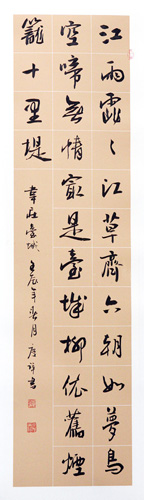 江雨霏〻江草齊六朝如夢鳥
空啼無情最是臺城柳依舊煙
籠十里堤
韋莊臺城 壬辰年春月